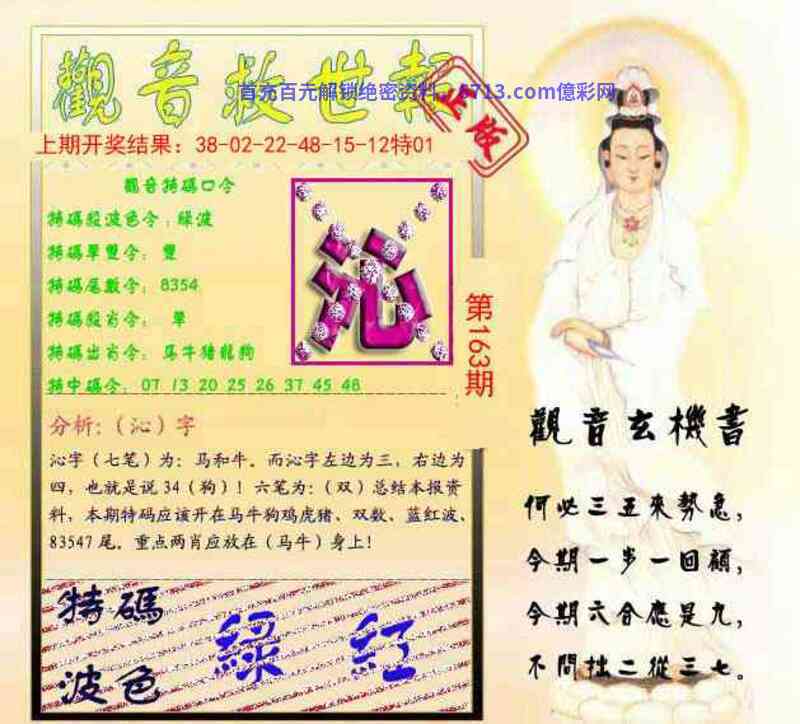 觀音救世報
首充百元解锁绝密资料
.com億彩网
正版
上期开奖结果：38-02-22-48-15-12特01
觀音特碼口令
特碼殺波色令：綠波
特碼單雙令：雙
特碼尾數令：8354
特碼殺肖令：單
特碼出肖令：马牛猪龍狗
特中碼令：07 13 20 25 26 37 45 48
沁
第163期
分析:（沁）字
沁字（七笔）为：马和牛。而沁字左边为三，右边为
四，也就是说34（狗）！六笔为:（双）总结本报资
料，本期特码应该开在马牛狗鸡虎猪、双数、蓝红波、
83547尾。重点两肖应放在（马牛）身上！
特碼
波色
綠 紅
觀音玄機書
何必三五來勢急，
今期一步一回顧，
今期六合應是九，
不問拙二從三七。